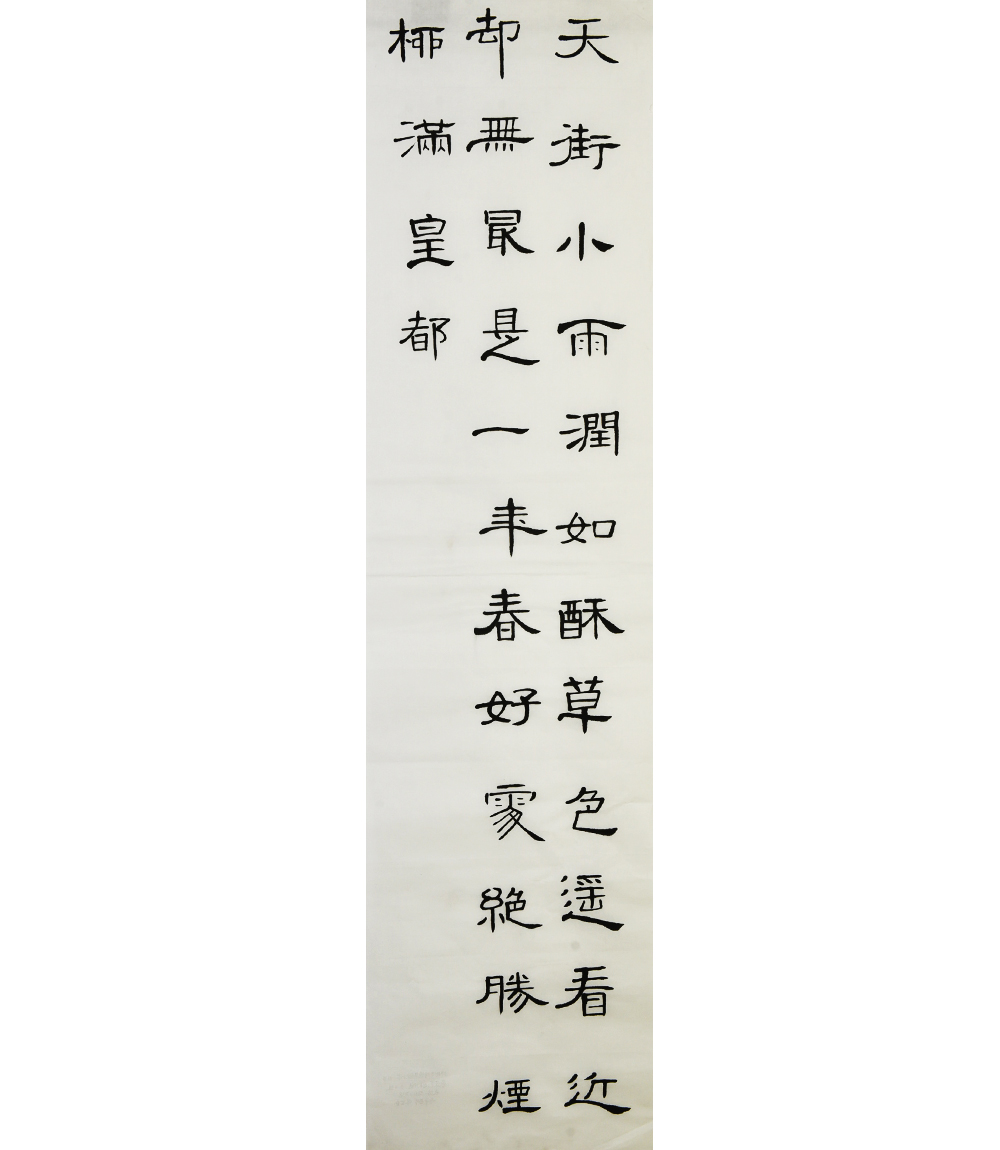 天街小雨潤如酥草色遥看近
却無最是一年春好處絶勝煙
桺滿皇都